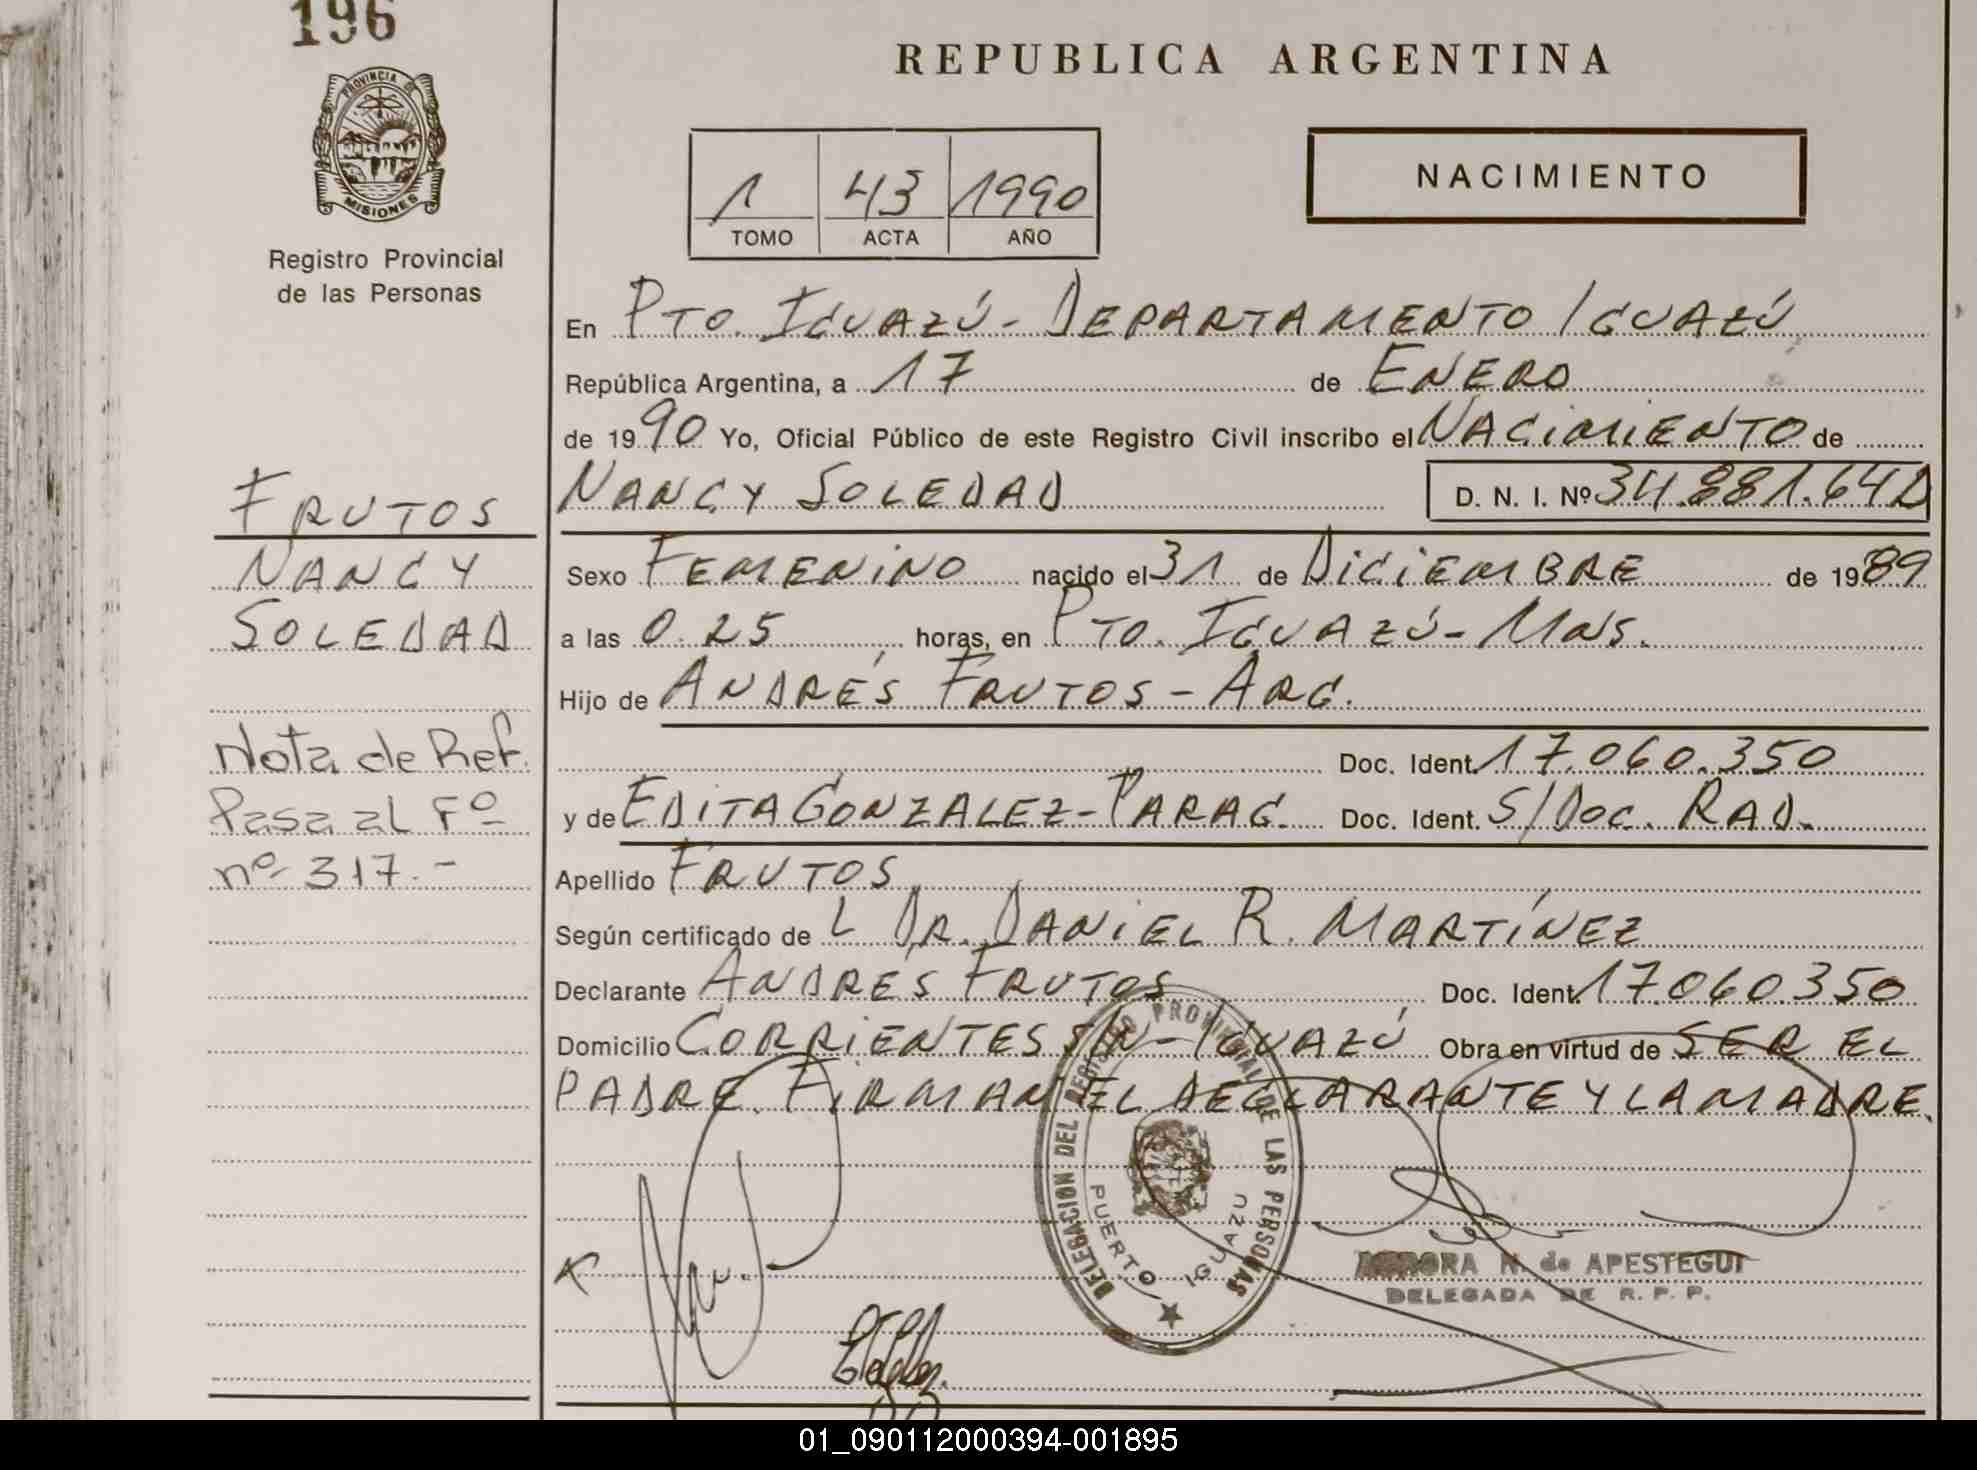 196
PROVINCIA DE
MISIONES
Registro Provincial
de las Personas
REPUBLICA ARGENTINA
1 43 1990
TOMO ACTA AÑO
NACIMIENTO
En PTO. IGUAZÚ - DEPARTAMENTO IGUAZÚ
República Argentina, a 17 de ENERO
de 1990 Yo, Oficial Público de este Registro Civil inscribo el NACIMIENTO de
NANCY SOLEDAD D. N. I. Nº 34.881.640
Sexo FEMENINO nacido el 31 de DICIEMBRE de 1989
a las 0.25 horas, en PTO. IGUAZÚ - MNS.
Hijo de ANDRÉS FRUTOS - ARG.
Doc. Ident. 17.060.350
y de EDITA GONZALEZ - PARAG. Doc. Ident. S/DOC. RAD.
Apellido FRUTOS
Según certificado de L DR. DANIEL R. MARTÍNEZ
Declarante ANDRÉS FRUTOS Doc. Ident. 17.060.350
Domicilio CORRIENTES S/N - IGUAZÚ Obra en virtud de SER EL
PADRE. FIRMAN EL DECLARANTE Y LA MADRE.
FRUTOS
NANCY
SOLEDAD
Nota de Ref.
Pasa al Fº
nº 317.-
DELEGACION DEL REGISTRO PROVINCIAL DE LAS PERSONAS
PUERTO IGUAZU
N. de APESTEGUI
DELEGADA DE R. P. P.
01_090112000394-001895